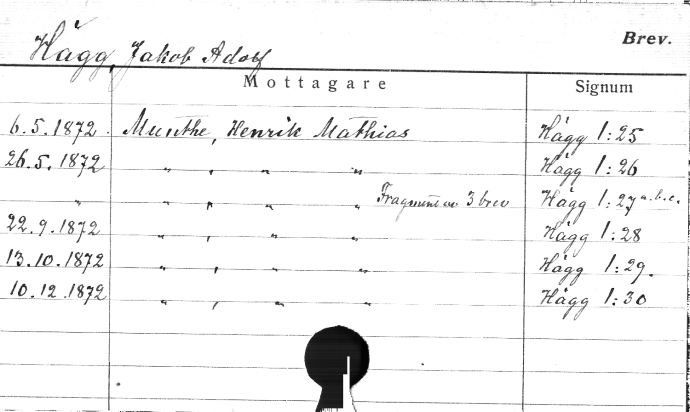 Brev.
Hägg, Jakob Adolf
Mottagare Signum
6.5.1872. Munthe, Henrik Mathias Hägg 1:25
26.5.1872 " , " " Hägg 1:26
" " , " " Fragment av 3 brev Hägg 1:27 a.b.c.
22.9.1872 " , " " Hägg 1:28
13.10.1872 " , " " Hägg 1:29.
10.12.1872 " , " " Hägg 1:30